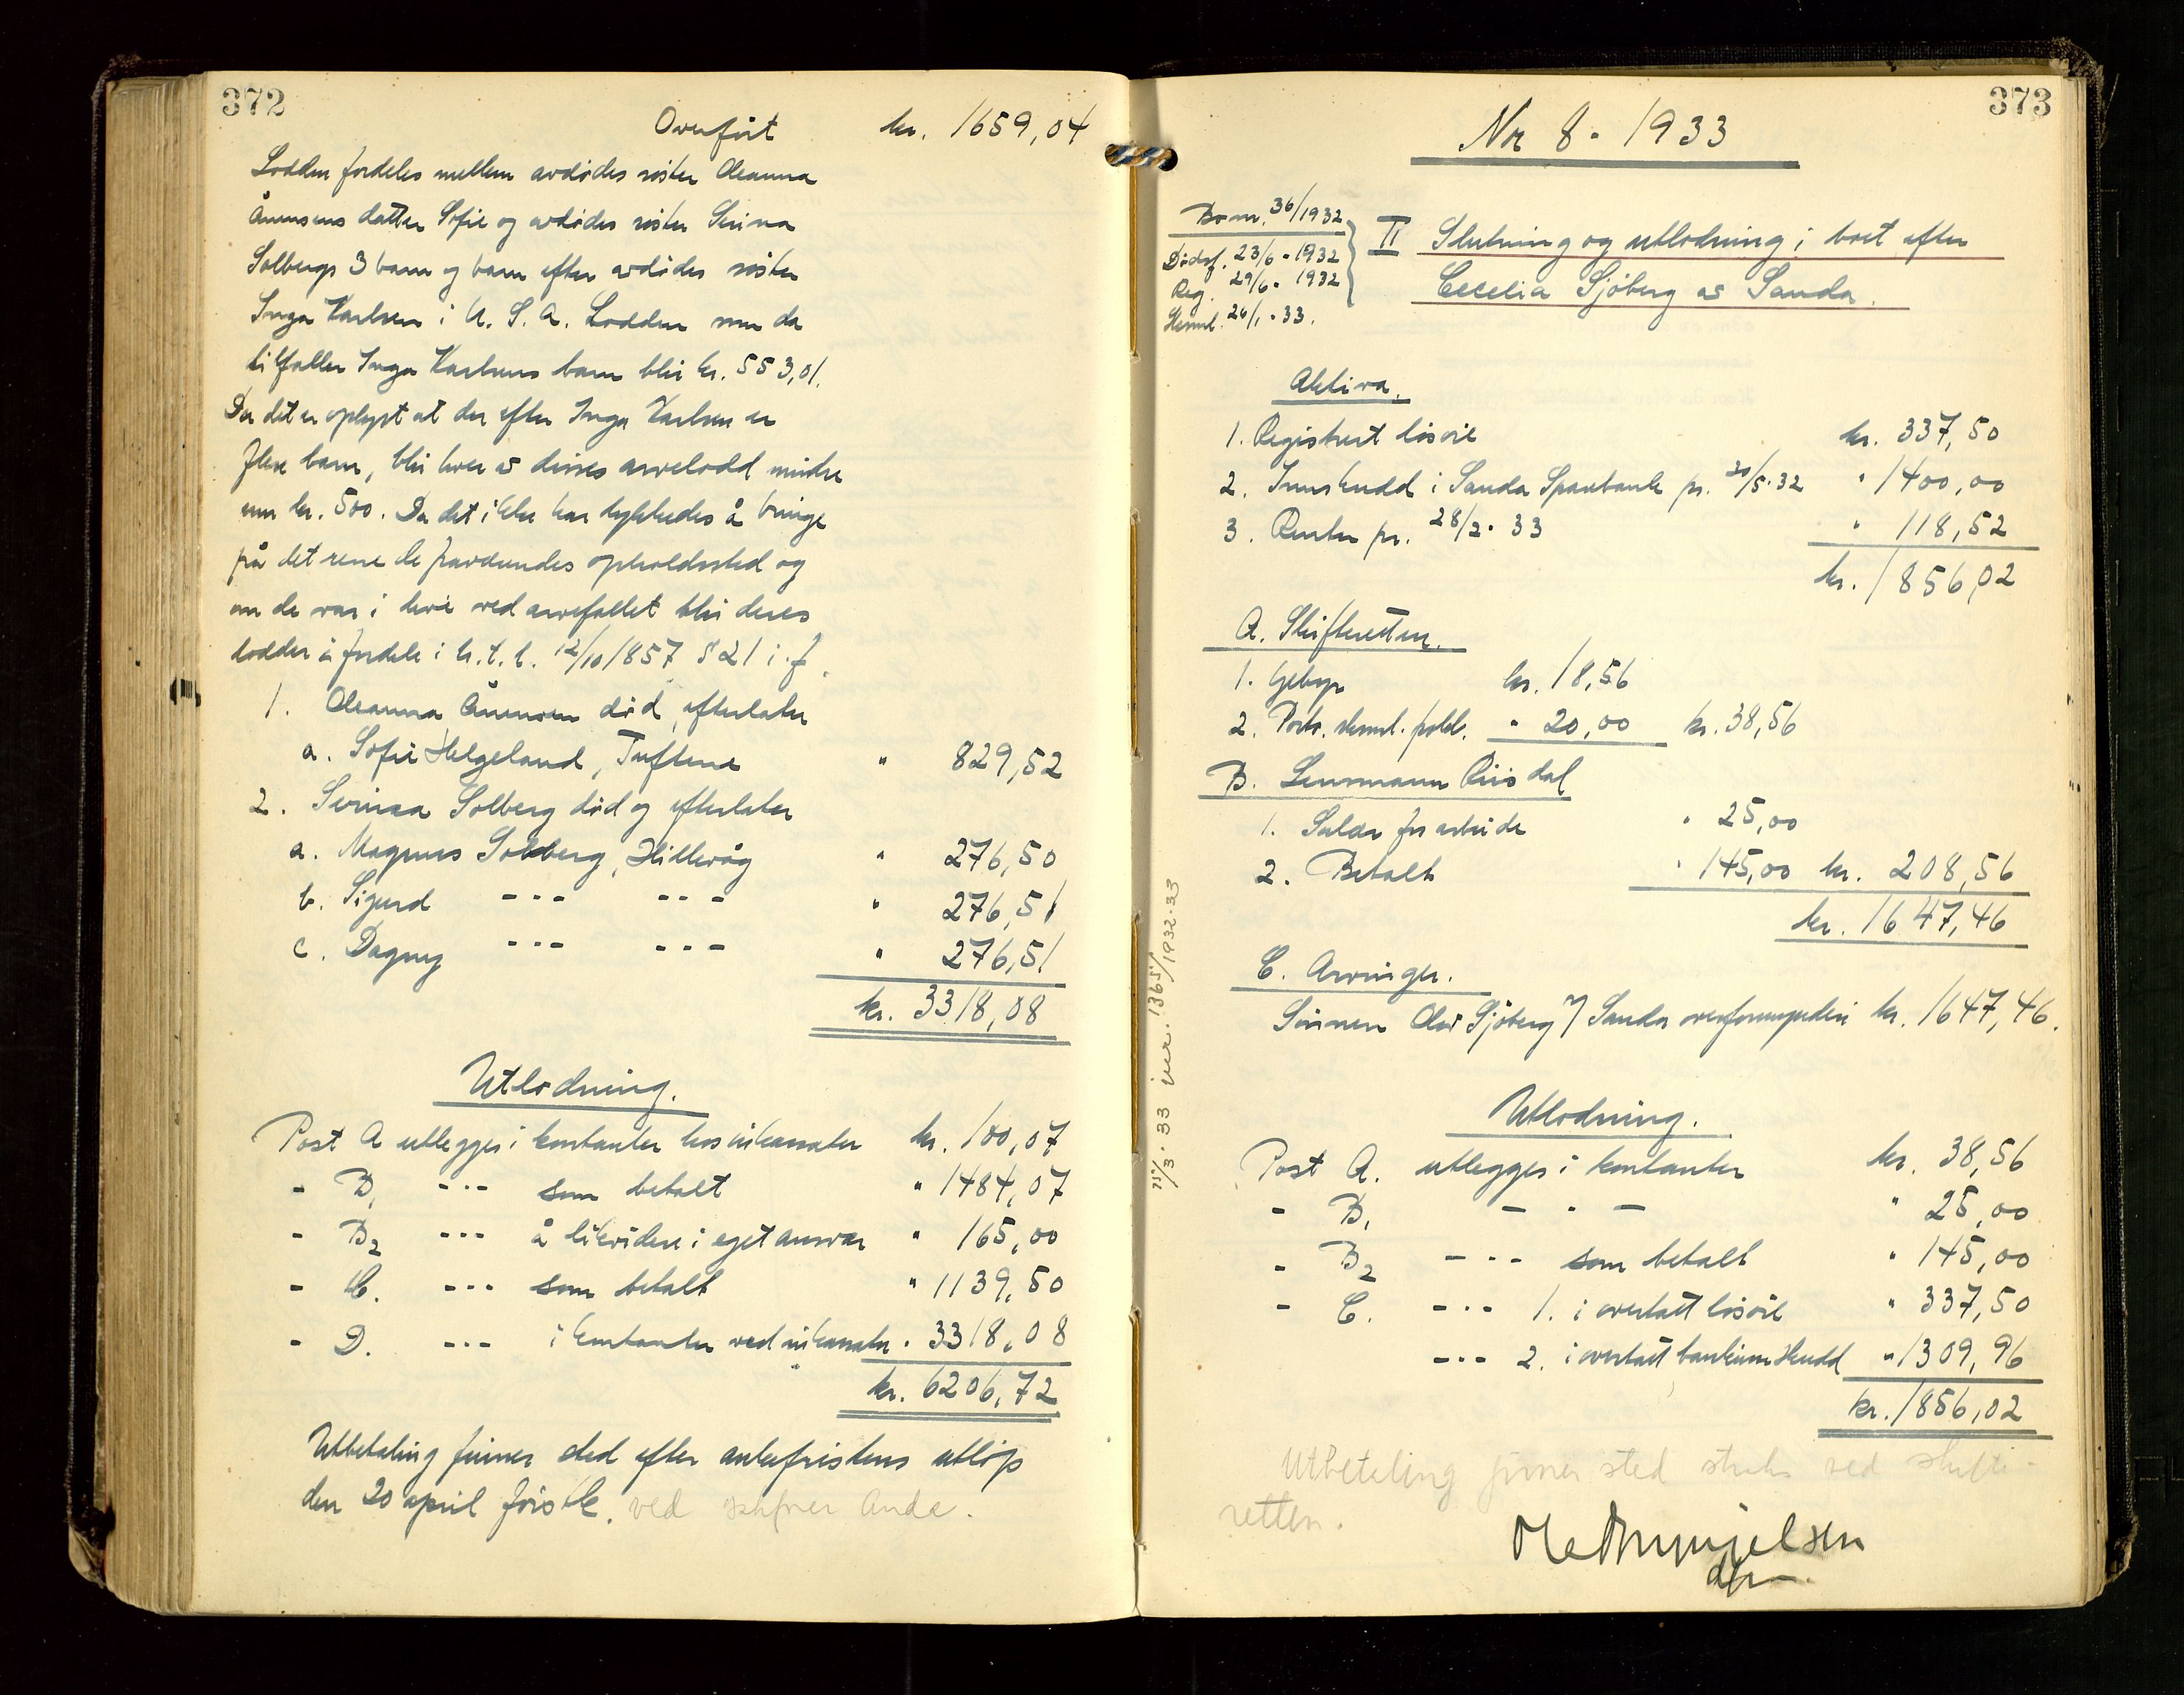 372
Overført kr. 1659,04
Lodden fordeles mellem avdødes søster Oleanna
Ånensens datter Sofie og avdødes søster Serina
Solbergs 3 barn og barn efter avdødes søster
Inga Karlsen i U. S. A. Lodden som da
tilfaller Inga Karlsens barn blir kr. 553,01.
Da det er oplyst at der efter Inga Karlsen er
flere barn, blir hver av disses arvelodd mindre
enn kr. 500. Da det ikke har lykkedes å bringe
på det rene de fraværendes opholdssted og
om de var i live ved arvefallet blir deres
lodder å fordele i h. t. l. 12/10 1857 § 21 i. f.
1. Oleanna Ånensen død, efterlater
a. Sofie Helgeland, Tuftene " 829,52
2. Serina Solberg død og efterlater
a. Magnus Solberg, Hillevåg " 276,50
b. Sigurd --- --- " 276,51
c. Dagny --- --- " 276,51
kr. 3318,08
Utlodning.
Post A utlegges i kontanter hos inkassator kr. 100,07
- B1 --- som betalt " 1484,07
- B2 --- å likvidere i eget ansvar " 165,00
- C. --- som betalt " 1139,50
- D. --- i kontanter ved inkassator " 3318,08
kr. 6206,72
Utbetaling finner sted efter ankefristens utløp
den 20 april førstk. ved Anda.
373
Nr 8 - 1933
Bo nr. 36/1932
Dødsf. 23/6 - 1932
Reg. 29/6 - 1932
26/1 - 33.
II Slutning og utlodning i boet efter
Cecelia Sjöberg av Sauda.
Aktiva.
1. Registrert løsøre kr. 337,50
2. Innskudd i Sauda Sparebank pr. 20/5.32 " 1400,00
3. Renter pr. 28/2. 33 " 118,52
kr. 1856,02
A. Skifteretten.
1. Gebyr kr. 18,56
2. Porto. " 20,00 kr. 38,56
B. Lensmann Riisdal
1. Salær for arbeide " 25,00
2. Betalt " 145,00 kr. 208,56
kr. 1647,46
C. Arvinger.
Sønnen Olav Sjöberg v/ Sauda overformynderi kr. 1647,46.
Utlodning.
Post A. utlegges i kontanter kr. 38,56
- B1 - - - " 25,00
- B2 --- som betalt " 145,00
- C. --- 1. i overtatt løsøre " 337,50
--- 2. i overtatt bankinnskudd " 1309,96
kr. 1856,02
Utbetaling finner sted straks ved skifte-
retten.
15/3. 33 1365/1932-33